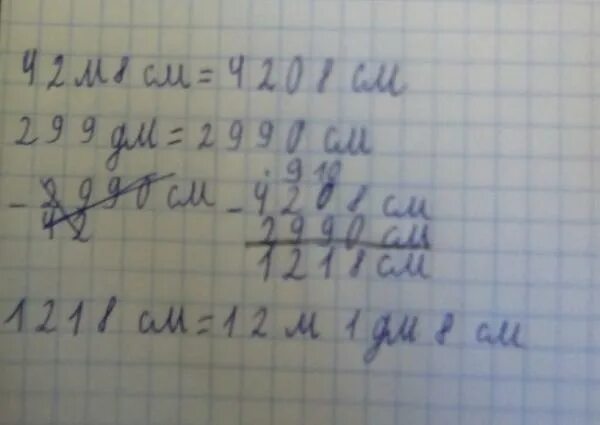 42м 8 см = 4208 см
299 дм = 2990 см
9 10
- 2990 см - 4208 см
42 2990 см
1218 см
1218 см = 12 м 1 дм 8 см